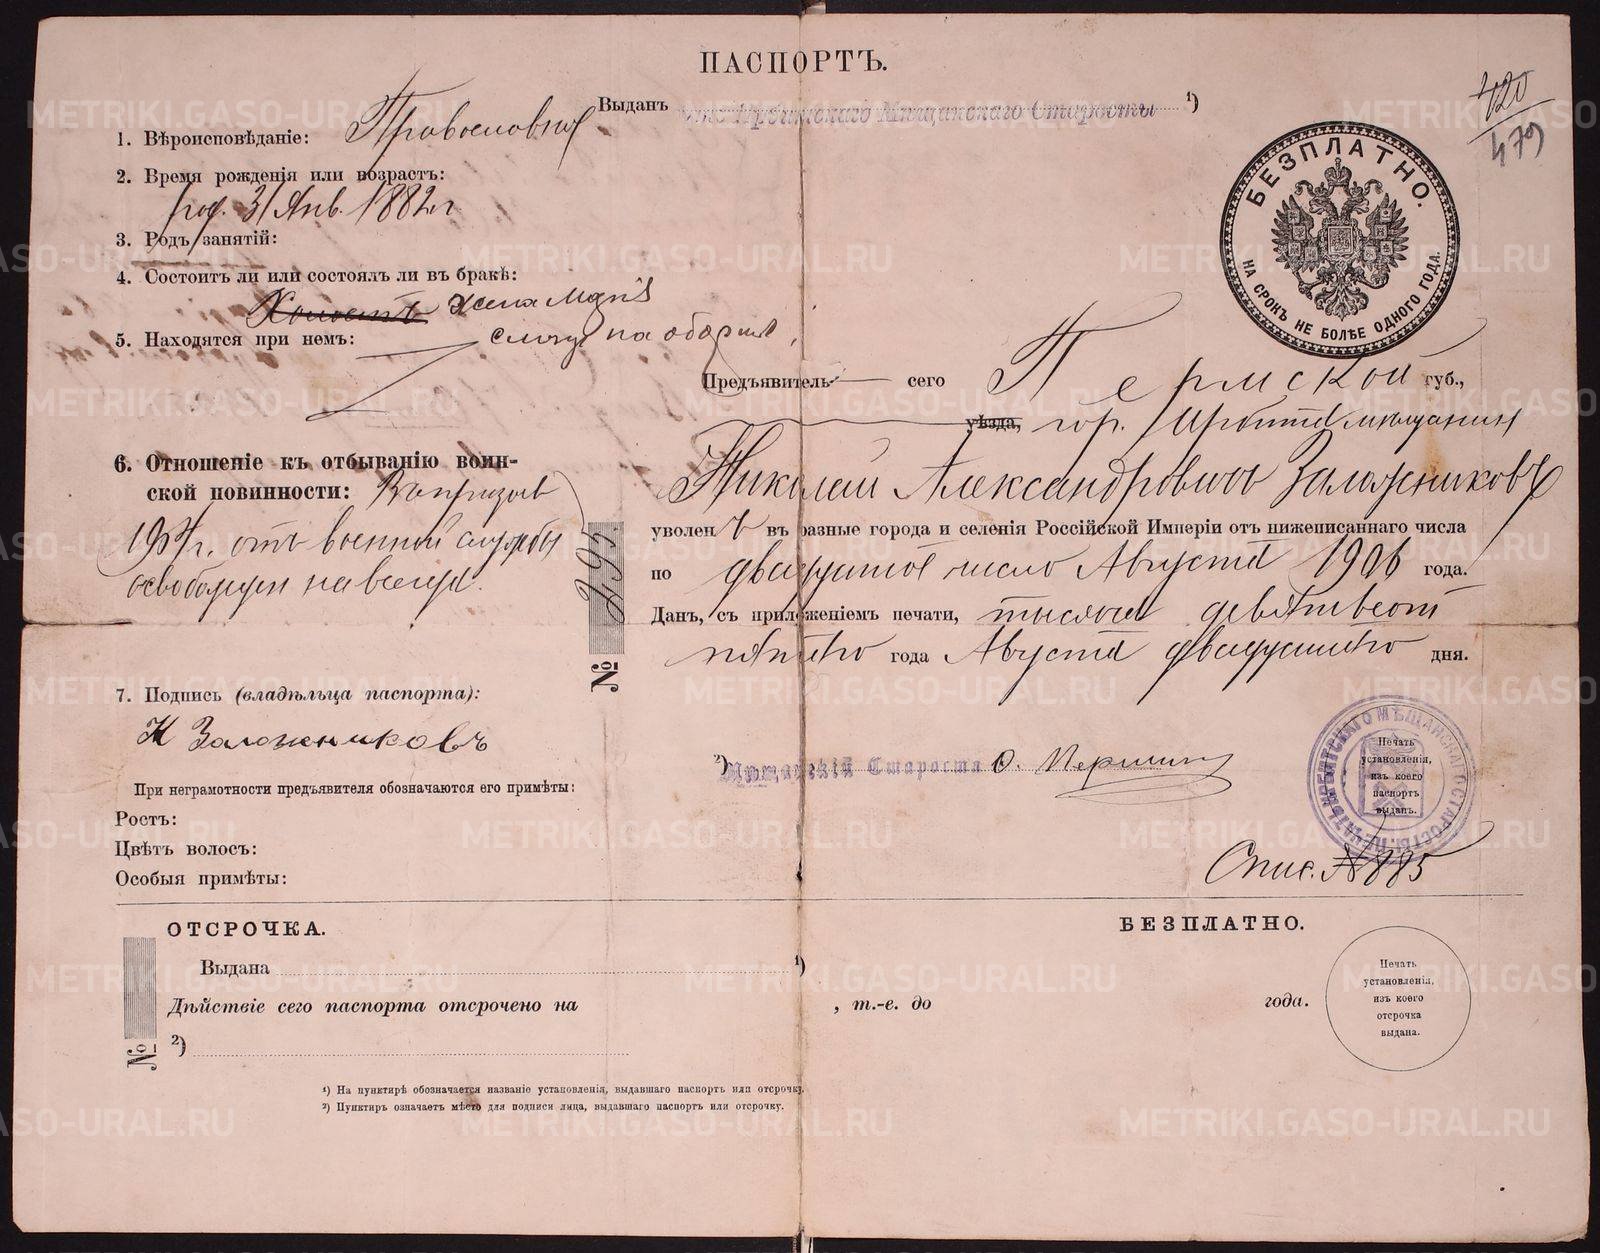 ПАСПОРТЪ.
Выданъ Ирбитскаго Мѣщанскаго Старосты ¹)
420
479
1. Вѣроисповѣданіе: Православный
2. Время рожденія или возрастъ:
род. 31 Янв. 1882 г
3. Родъ занятій:
4. Состоитъ ли или состоялъ ли въ бракѣ:
Холостъ жена
смотр на обороте
5. Находятся при немъ:
6. Отношеніе къ отбыванію воин-
ской повинности: В призыв
1904 г. отъ военной службы
освобожден навсегда.
7. Подпись (владѣльца паспорта):
Н Заложниковъ
При неграмотности предъявителя обозначаются его примѣты:
Ростъ:
Цвѣтъ волосъ:
Особыя примѣты:
№ 295
БЕЗПЛАТНО.
НА СРОКЪ НЕ БОЛѢЕ ОДНОГО ГОДА.
Предъявитель сего Пермской губ.,
уѣзда, гор. Ирбита мещанин
Николай Александровичъ Заложниковъ
уволенъ въ разные города и селенія Россійской Имперіи отъ нижеписаннаго числа
по двадцатое число Августа 1906 года.
Данъ, съ приложеніемъ печати, тысяча девятьсот
пятаго года Августа двадцатаго дня.
²) Мѣщанскій Староста О. Першин
ПЕЧАТЬ ИРБИТСКАГО МѢЩАНСКАГО СТАРОСТЫ
Печать
установленія,
изъ коего
паспортъ
выданъ.
Спис. № 885
ОТСРОЧКА.
БЕЗПЛАТНО.
Выдана ¹)
Дѣйствіе сего паспорта отсрочено на , т.-е. до года.
№ ²)
Печать
установленія,
изъ коего
отсрочка
выдана.
¹) На пунктирѣ обозначается названіе установленія, выдавшаго паспортъ или отсрочку.
²) Пунктиръ означаетъ мѣсто для подписи лица, выдавшаго паспортъ или отсрочку.
METRIKI.GASO-URAL.RU